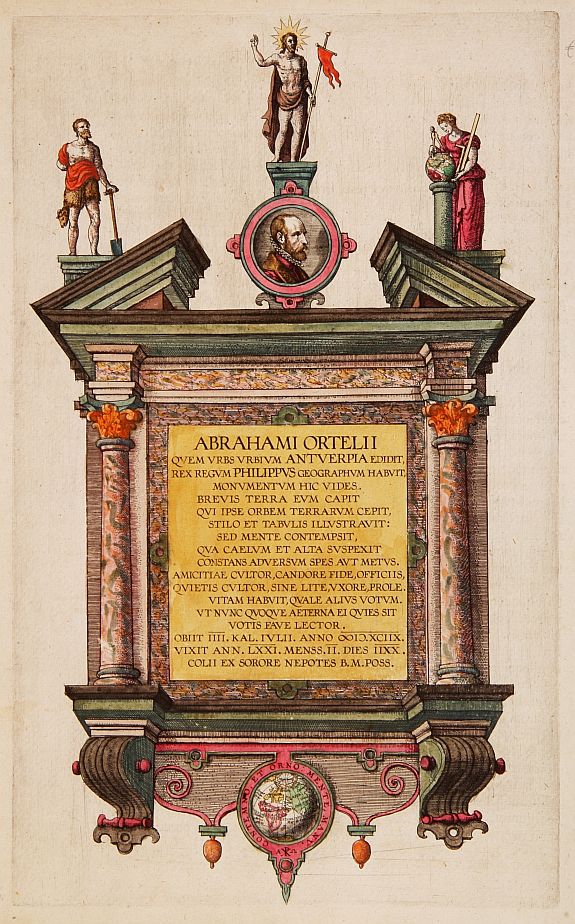 ABRAHAMI ORTELII
QVEM VRBS VRBIVM ANTVERPIA EDIDIT,
REX REGVM PHILIPPVS GEOGRAPHVM HABVIT,
MONVMENTVM HIC VIDES.
BREVIS TERRA EVM CAPIT
QVI IPSE ORBEM TERRARVM CEPIT,
STILO ET TABVLIS ILLVSTRAVIT:
SED MENTE CONTEMPSIT,
QVA CAELVM ET ALTA SVSPEXIT
CONSTANS ADVERSVM SPES AVT METVS.
AMICITIAE CVLTOR, CANDORE FIDE, OFFICIIS,
QVIETIS CVLTOR, SINE LITE, VXORE, PROLE.
VITAM HABVIT, QVALE ALIVS VOTVM.
VT NVNC QVOQVE AETERNA EI QVIES SIT
VOTIS FAVE LECTOR.
OBIIT IIII. KAL. IVLII. ANNO ↀIↃ.XCIIX.
VIXIT ANN. LXXI. MENSS. II. DIES IIXX.
COLII EX SORORE NEPOTES B.M. POSS.
CONTEMNO ET ORNO MENTE, MANV.